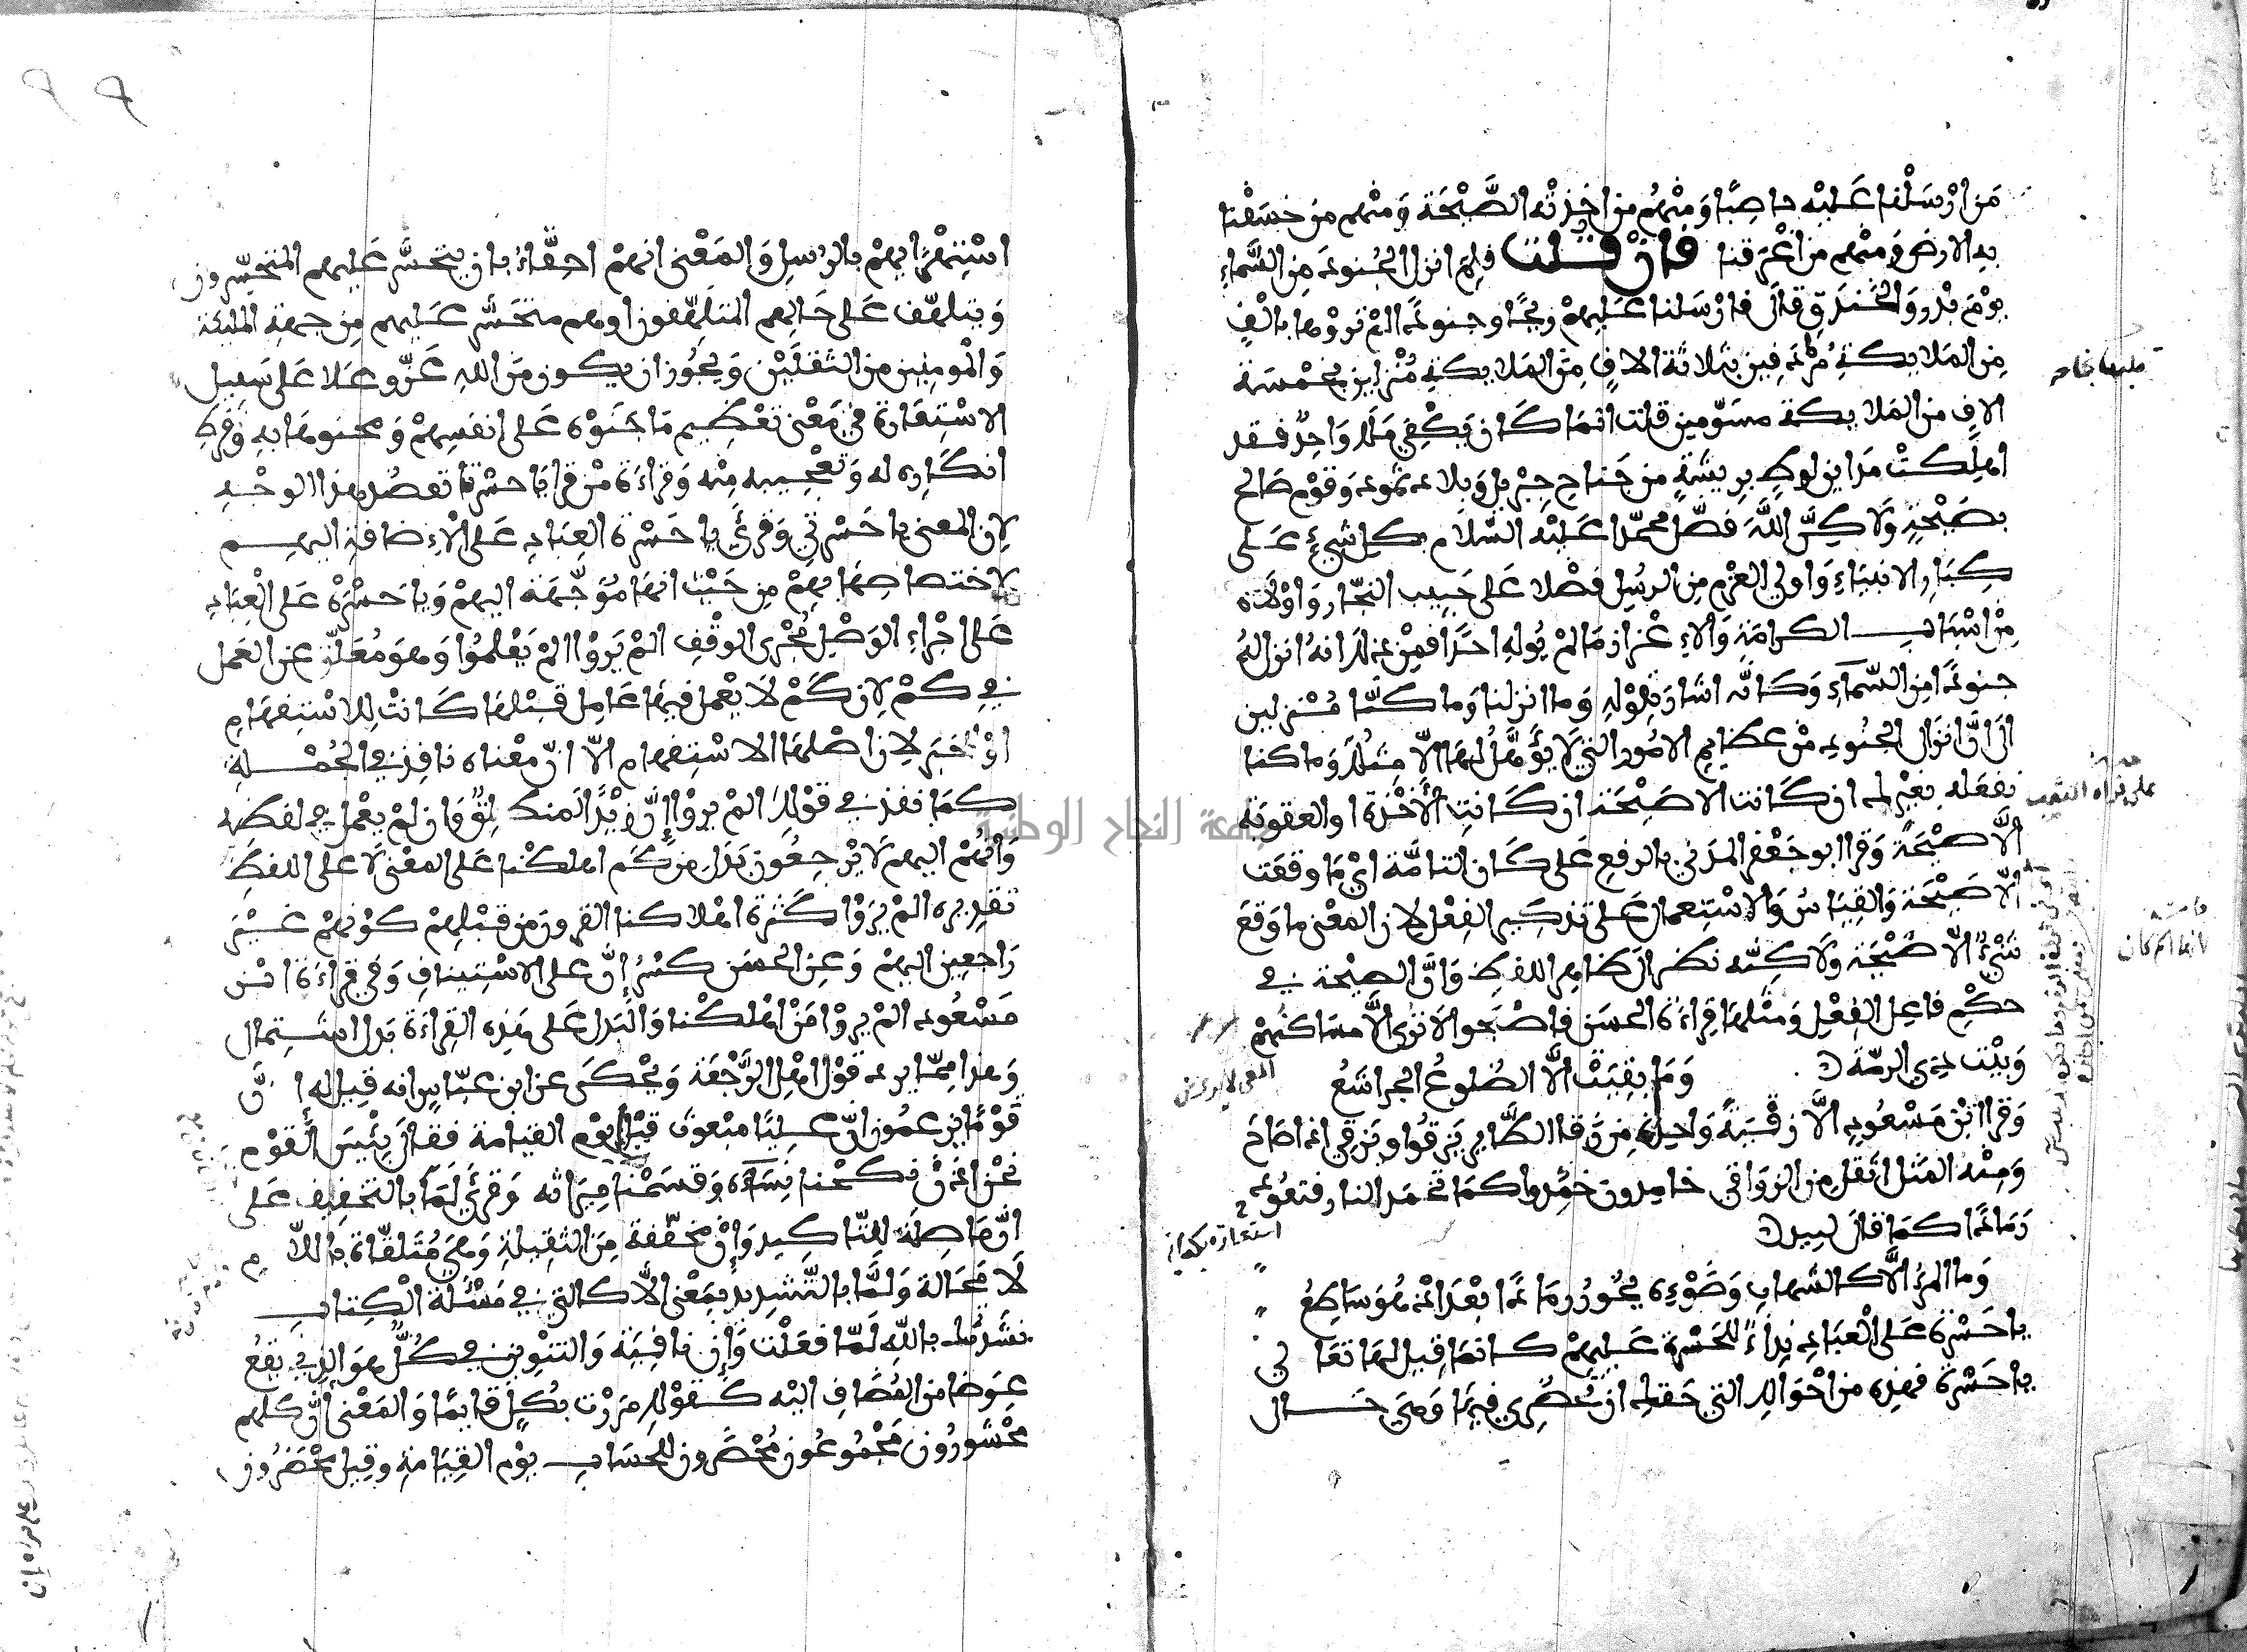 مَن ارْسَلْنا عَليْه حاصِبًا وَمِنْهُم من اخَذتْه الصَّيْحَة وَمنْهم من خسَفْنا
به الارض وَمنْهم من اغْرَقنا فان قلت فلِمَ انزل الجُنودَ مِن السَّماءِ
يوْمَ بدْر وَالخَنْدَق قالَ فارْسَلنا عَليهِمْ ريحًا وجنودًا لمْ تروْها بالْفٍ
مِن المَلايكةِ مُرْدَفِين بثلاثة الافٍ مِن المَلايكةِ مُنْزلين بخمْسَة
الافِ من المَلايكة مسَوّمين قلت انّما كَان يَكْفِي مَلك وَاحِدٌ فقد
اهلِكتْ مَداين لوطٍ بريشةٍ من جَناحِ جِبْريل وَبلاد ثمود وَقوْم صَالح
بصَيْحَةٍ وَلاكِنَّ اللَّهَ فضّل محمّدا عَليْه السَّلام بكل شيْءٍ عَلى
كِبَارِ الانبيَاءِ وَاولي العزْم مِن الرسُل فضْلا عَلى حَبِيب النّجّار وَاوْلاه
مِنْ اسْبَاب الكرامَة وَالاِعْزاز مَا لمْ يُولهِ احَدًا فمِنْ ذلك انهُ انزل لهُ
جنودًا مِن السّمآءِ وَكانّه اشارَ بقوْلهِ وَما انزلنا وَما كنّا مُنْزلين
الَى انَّ انزَال الجُنود مْن عظايمِ الامُور التي لَا يؤَهَّلُ لهَا الّا مثلك وَما كنا
نفعَله بغيْرك ان كَانت الا صَيْحَة ان كَانتِ الْأَخْذة او العقوبَة
الَّا صيْحَةً وَقرا ابو جَعْفر المدَني بالرفع عَلى كَان التامَّة ايْ مَا وقعَت
الّا صَيْحَة وَالقِيَاسُ وَالاسْتِعمال عَلى تذكير الفِعْل لان المعْنى ما وَقعَ
شيْءٌ الّا صَيْحَة وَلاكِنّه نظر الَى ظاهِر اللفظِ وَانَّ الصيْحة في
حكْمِ فاعِل الفِعْل وَمثْلهَا قِراءَة الحسَن فاصْبَحوا لا تُرى الَّا مسَاكنُهمْ
وَبيْت ذي الرمّة
وَمَا بقِيَتْ الَّا الضُّلوعُ الجراشعُ
وَقرا ابْن مَسْعُودٍ الَّا زقْيَةً وَاحِدَة مِن زَقا الطَّاير يَزقُوا وَيَزقي اذا صَاحَ
وَمِنْه المَثل اثقل مِن الزوَاقي خامِدون خمَدوا كمَا تخمَد النار فتعُود
رَمَادًا كمَا قالَ لبيد
وَما المرْءُ الَّا كالشّهاب وَضَوْءِه يَحُورُ رمَادًا بعْدَ اذ هُوَ سَاطِعُ
يا حَسْرَة عَلى الْعبَادِ نِدَاءً للحَسْرَة عَليهمْ كانّمَا قِيل لهَا تعَالي
يا حَسْرَة فهذِه من احْوَالك التي حَقك ان تحْضُري فِيهَا وَهيَ حَال
اسْتِهْزَايِهمْ بالرسل وَالمَعْنى انّهمْ احِقَّاءُ بان يتحسَّر عَليهم المتحسّرون
وَيتلهّف عَلى حَالِهم المتلهّفون او هم متحَسَّر عَليهم مِن جِهةِ المليكة
وَالْمومِنِين من الثقَلَيْن وَيَجُوز ان يكون مَن اللهِ عَزّ وعَلا عَلى سَبِيل
الاسْتِعَارَة في مَعْنى تعْظِيم مَا جَنَوْه عَلى انفسِهِمْ وَمحنوهَا بهِ وَفرط
انكَاره له وَتعْجِيبه مِنْه وَقراءَة مَنْ قرا يَا حسْرتا تعضُد هذا الوجْه
لان المعنى يا حَسْرتي وَقرئَ يا حَسْرة العِبَادِ عَلى الْاِضافة اليهِم
لاختصاصِهَا بهِمْ مِن حَيْث انهَا مُوَجّهَة اليهمْ وَيا حَسْرَهْ عَلى الْعِبَادِ
عَلى اجْراءِ الوَصْل مُجْرى الوقْفِ المْ يَرَوْا المْ يَعْلمُوا وَهوَ مُعَلّق عن العَمل
في كمْ لان كَمْ لَا يعْمل فيهَا عَامِل قبْلهَا كَانتْ لِلاسْتِفهَام
اوْ للخبَر لان اصْلهَا الاسْتِفهام الّا انّ مَعْناه نافِذ في الجُمْلة
كمَا نفذ في قوْلك المْ يروْا إِنَّ زيْدًا لَمنطلِقٌ وَان لمْ يعْمل في لفظه
وَانّهُمْ اليهم لَا يرْجعُون بَدَل مِن كَم اهلكْنا عَلى المعْنى لَا على اللفظِ
تقديره المْ يَرَوْا كَثْرة اهْلاكنا القرونَ من قبْلِهِمْ كوْنَهمْ غيْرَ
رَاجعِين اليهمْ وَعِن الحَسَن كسْرُ إِنَّ على الاسْتِيناف وَفي قِراءَة ابْن
مَسْعُود المْ يروْا مَنْ اهْلكْنا وَالبَدل عَلى هَذِه القِراءَة بَدل اشتِمال
وَهذا مِمّا يردّ قوْل اهْل الرَّجْعَة وَيُحْكَى عَن ابن عبّاس انه قِيل له انَّ
قوْمًا يزعمُون انّ عَليًّا مبْعوث قبْلَ يَوْم القيَامة فقالَ بِئْيسَ الْقوْم
نحْن اذَنْ نكحْنا نسَآءَه وَقسَمْنا مِيرَاثه وَقرئَ لَمَا بالتخفِيف عَلى
انّ مَا صِلَة للتاكيد وَإِنْ مخَفّفة مِن الثقيلةِ وَهيَ مُتَلقّاة باللام
لَا محَالة وَلَمَّا بالتَّشدِيد بمَعْنى الّا كالتي في مَسْئلة الْكِتاب
نشدْتك باللّهِ لَمّا فعَلْت وَإِن نافِيَة وَالتنْوِين في كُلٌّ هوَ الذِي يقعُ
عِوَضا من المُضَافِ اليْه كقوْلِك مَررْت بكُلٍّ قايمًا وَالمَعْنى انَّ كلهم
محْشورُون مَجْمُوعُون مُحْضَرون للحسَاب يوْم القِيَامةِ وقِيل محْضَرُون